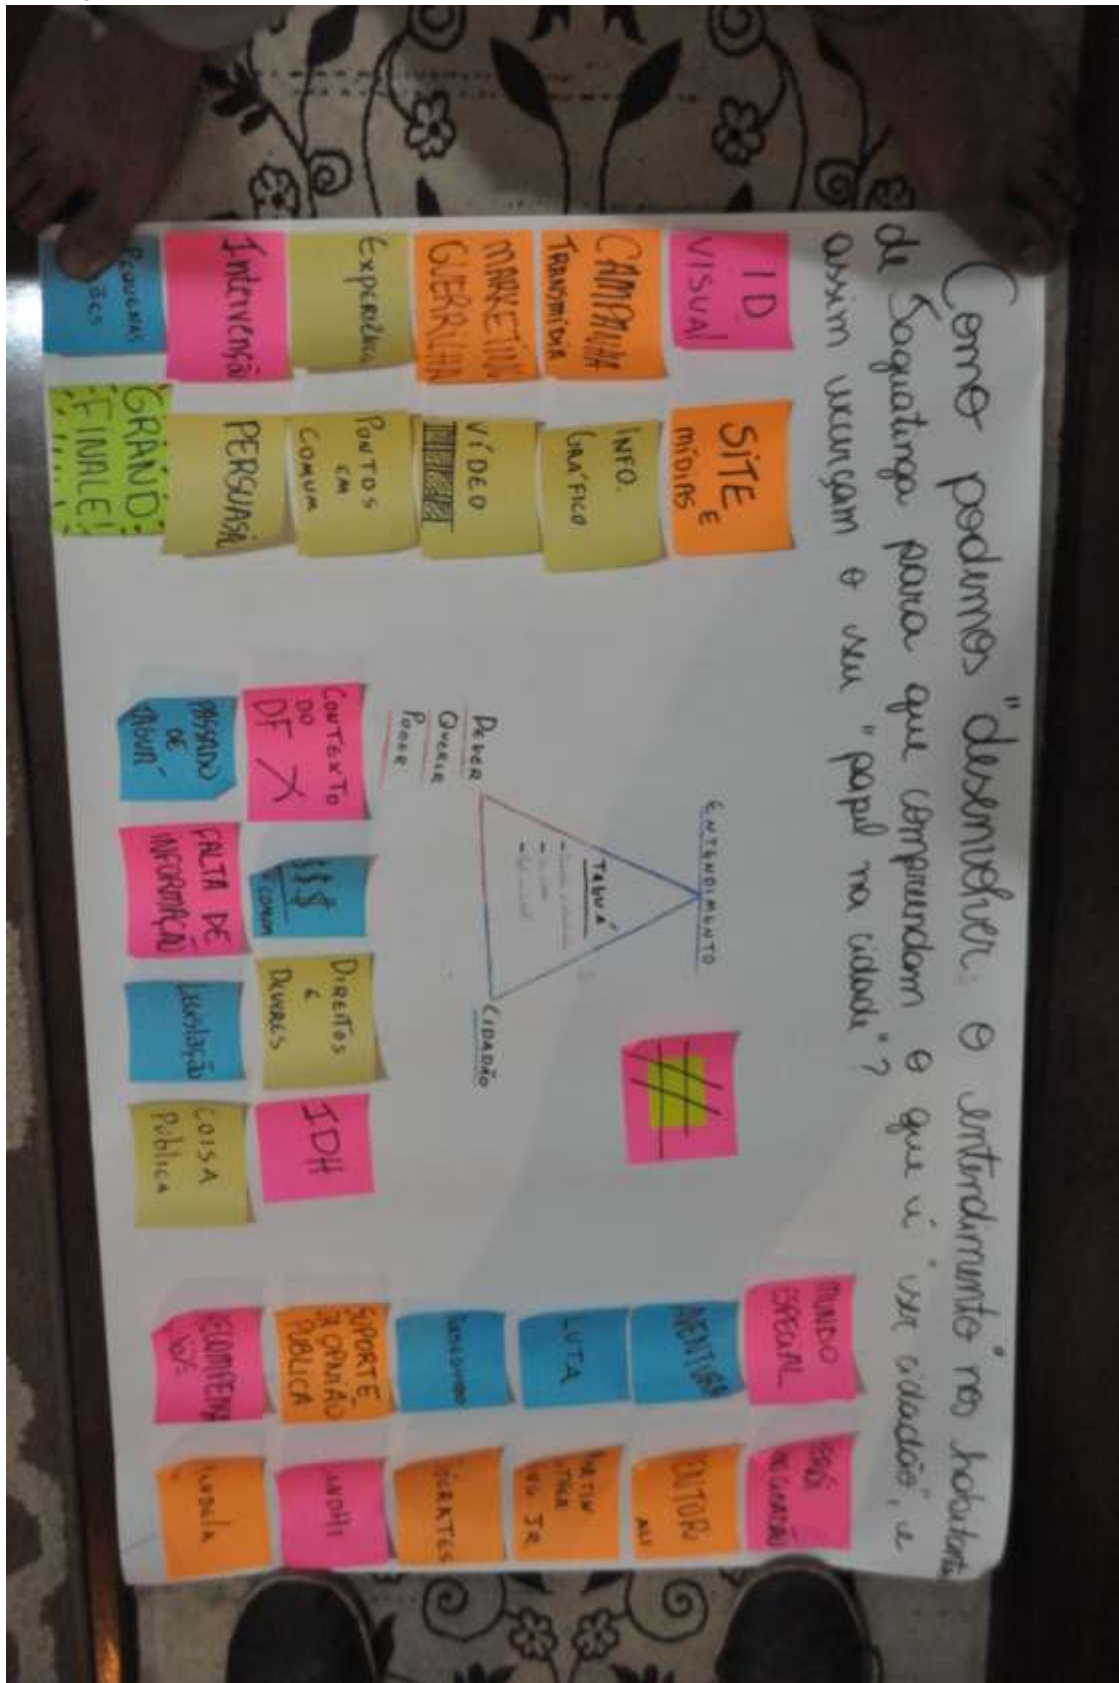 Como podemos "desenvolver" o entendimento nos habitantes
de Taguatinga para que compreendam o que é "ser cidadão", e
assim exerçam o seu "papel na cidade"?
ID
VISUAL
CAMPANHA
TRANSMÍDIA
MARKETING
GUERRILHA
Experiência
Intervenção
PEQUENAS
SITE E
MÍDIAS
INFO.
GRÁFICO
VÍDEO
PONTOS
EM
COMUM
PERSUASÃ
GRAND
FINALE!
ENTENDIMENTO
TABUÁ
DEVER
QUERER
PODER
CIDADÃO
CONTEXTO
DO
DF X
$$$
COMUM
DIREITOS
E
DEVERES
IDH
PASSADO
DE
TABUÁ
FALTA DE
INFORMAÇÃO
LEGISLAÇÃO
COISA
PÚBLICA
MUNDO
ESPECIAL
AVENTURA
LUTA
SUPORTE
DA OPINIÃO
PÚBLICA
RECOMPENSA
MENTOR
ALI
MARTIN
LUTHER
KING JR
SÓCRATES
GANDHI
MANDELA